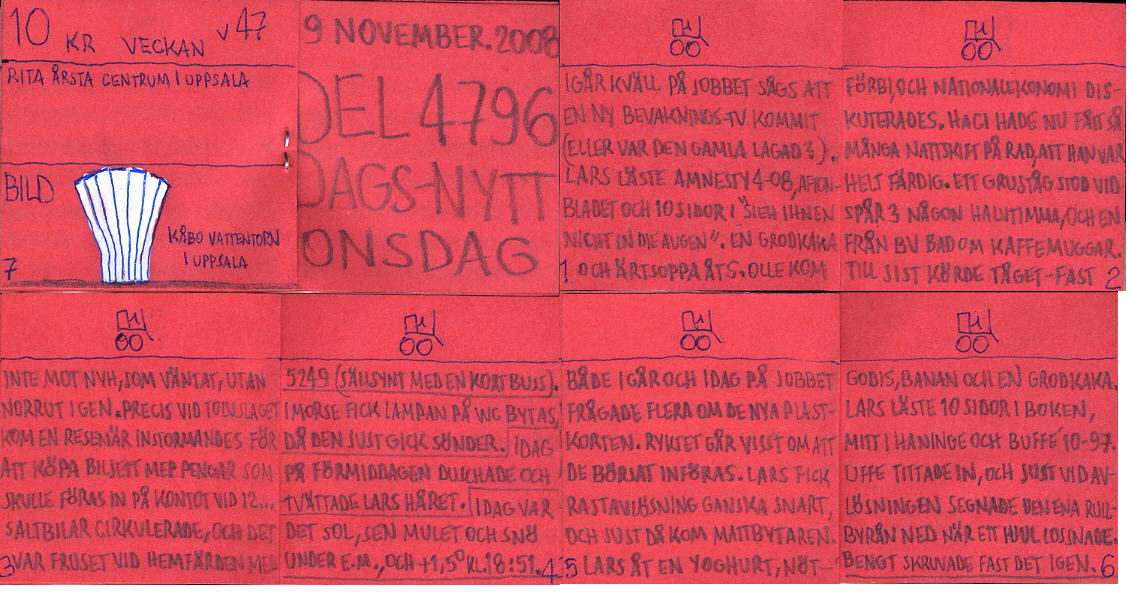 10 KR VECKAN V47
RITA ÅRSTA CENTRUM I UPPSALA
BILD
KÅBO VATTENTORN
I UPPSALA
7
9 NOVEMBER. 2008
DEL 4796
DAGS-NYTT
ONSDAG
IGÅR KVÄLL PÅ JOBBET SÅGS ATT
EN NY BEVAKNINGS-TV KOMMIT
(ELLER VAR DEN GAMLA LAGAD?).
LARS LÄSTE AMNESTY 4-08, AFTON-
BLADET OCH 10 SIDOR I "SIEH IHNEN
NICHT IN DIE AUGEN". EN GRODKAKA
1 OCH ÄRTSOPPA ÅTS. OLLE KOM
FÖRBI, OCH NATIONALEKONOMI DIS-
KUTERADES. HACI HADE NU FÅTT SÅ
MÅNGA NATTSKIFT PÅ RAD, ATT HAN VAR
HELT FÄRDIG. ETT GRUSTÅG STOD VID
SPÅR 3 NÅGON HALVTIMMA, OCH EN
FRÅN BV BAD OM KAFFEMUGGAR.
TILL SIST KÖRDE TÅGET-FAST 2
INTE MOT NYH, SOM VÄNTAT, UTAN
NORRUT IGEN. PRECIS VID TOLVSLAGET
KOM EN RESENÄR INSTORMANDES FÖR
ATT KÖPA BILJETT MED PENGAR SOM
SKULLE FÖRAS IN PÅ KONTOT VID 12...
SALTBILAR CIRKULERADE, OCH DET
3 VAR FRUSET VID HEMFÄRDEN MED
5249 (SÄLLSYNT MED EN KORT BUSS).
I MORSE FICK LAMPAN PÅ WC BYTAS,
DÅ DEN JUST GICK SÖNDER. IDAG
PÅ FÖRMIDDAGEN DUSCHADE OCH
TVÄTTADE LARS HÅRET. IDAG VAR
DET SOL, SEN MULET OCH SNÖ
UNDER E.M., OCH +1,5° KL.18:51. 4
BÅDE IGÅR OCH IDAG PÅ JOBBET
FRÅGADE FLERA OM DE NYA PLAST-
KORTEN. RYKTET GÅR VISST OM ATT
DE BÖRJAT INFÖRAS. LARS FICK
RASTAVLÖSNING GANSKA SNART,
OCH JUST DÅ KOM MATTBYTAREN.
5 LARS ÅT EN YOGHURT, NÖT-
GODIS, BANAN OCH EN GRODKAKA.
LARS LÄSTE 10 SIDOR I BOKEN,
MITT I HANINGE OCH BUFFÉ 10-97.
UFFE TITTADE IN, OCH JUST VID AV-
LÖSNINGEN SEGNADE DEN ENA RULL-
BYRÅN NED NÄR ETT HJUL LOSSNADE.
BENGT SKRUVADE FAST DET IGEN. 6